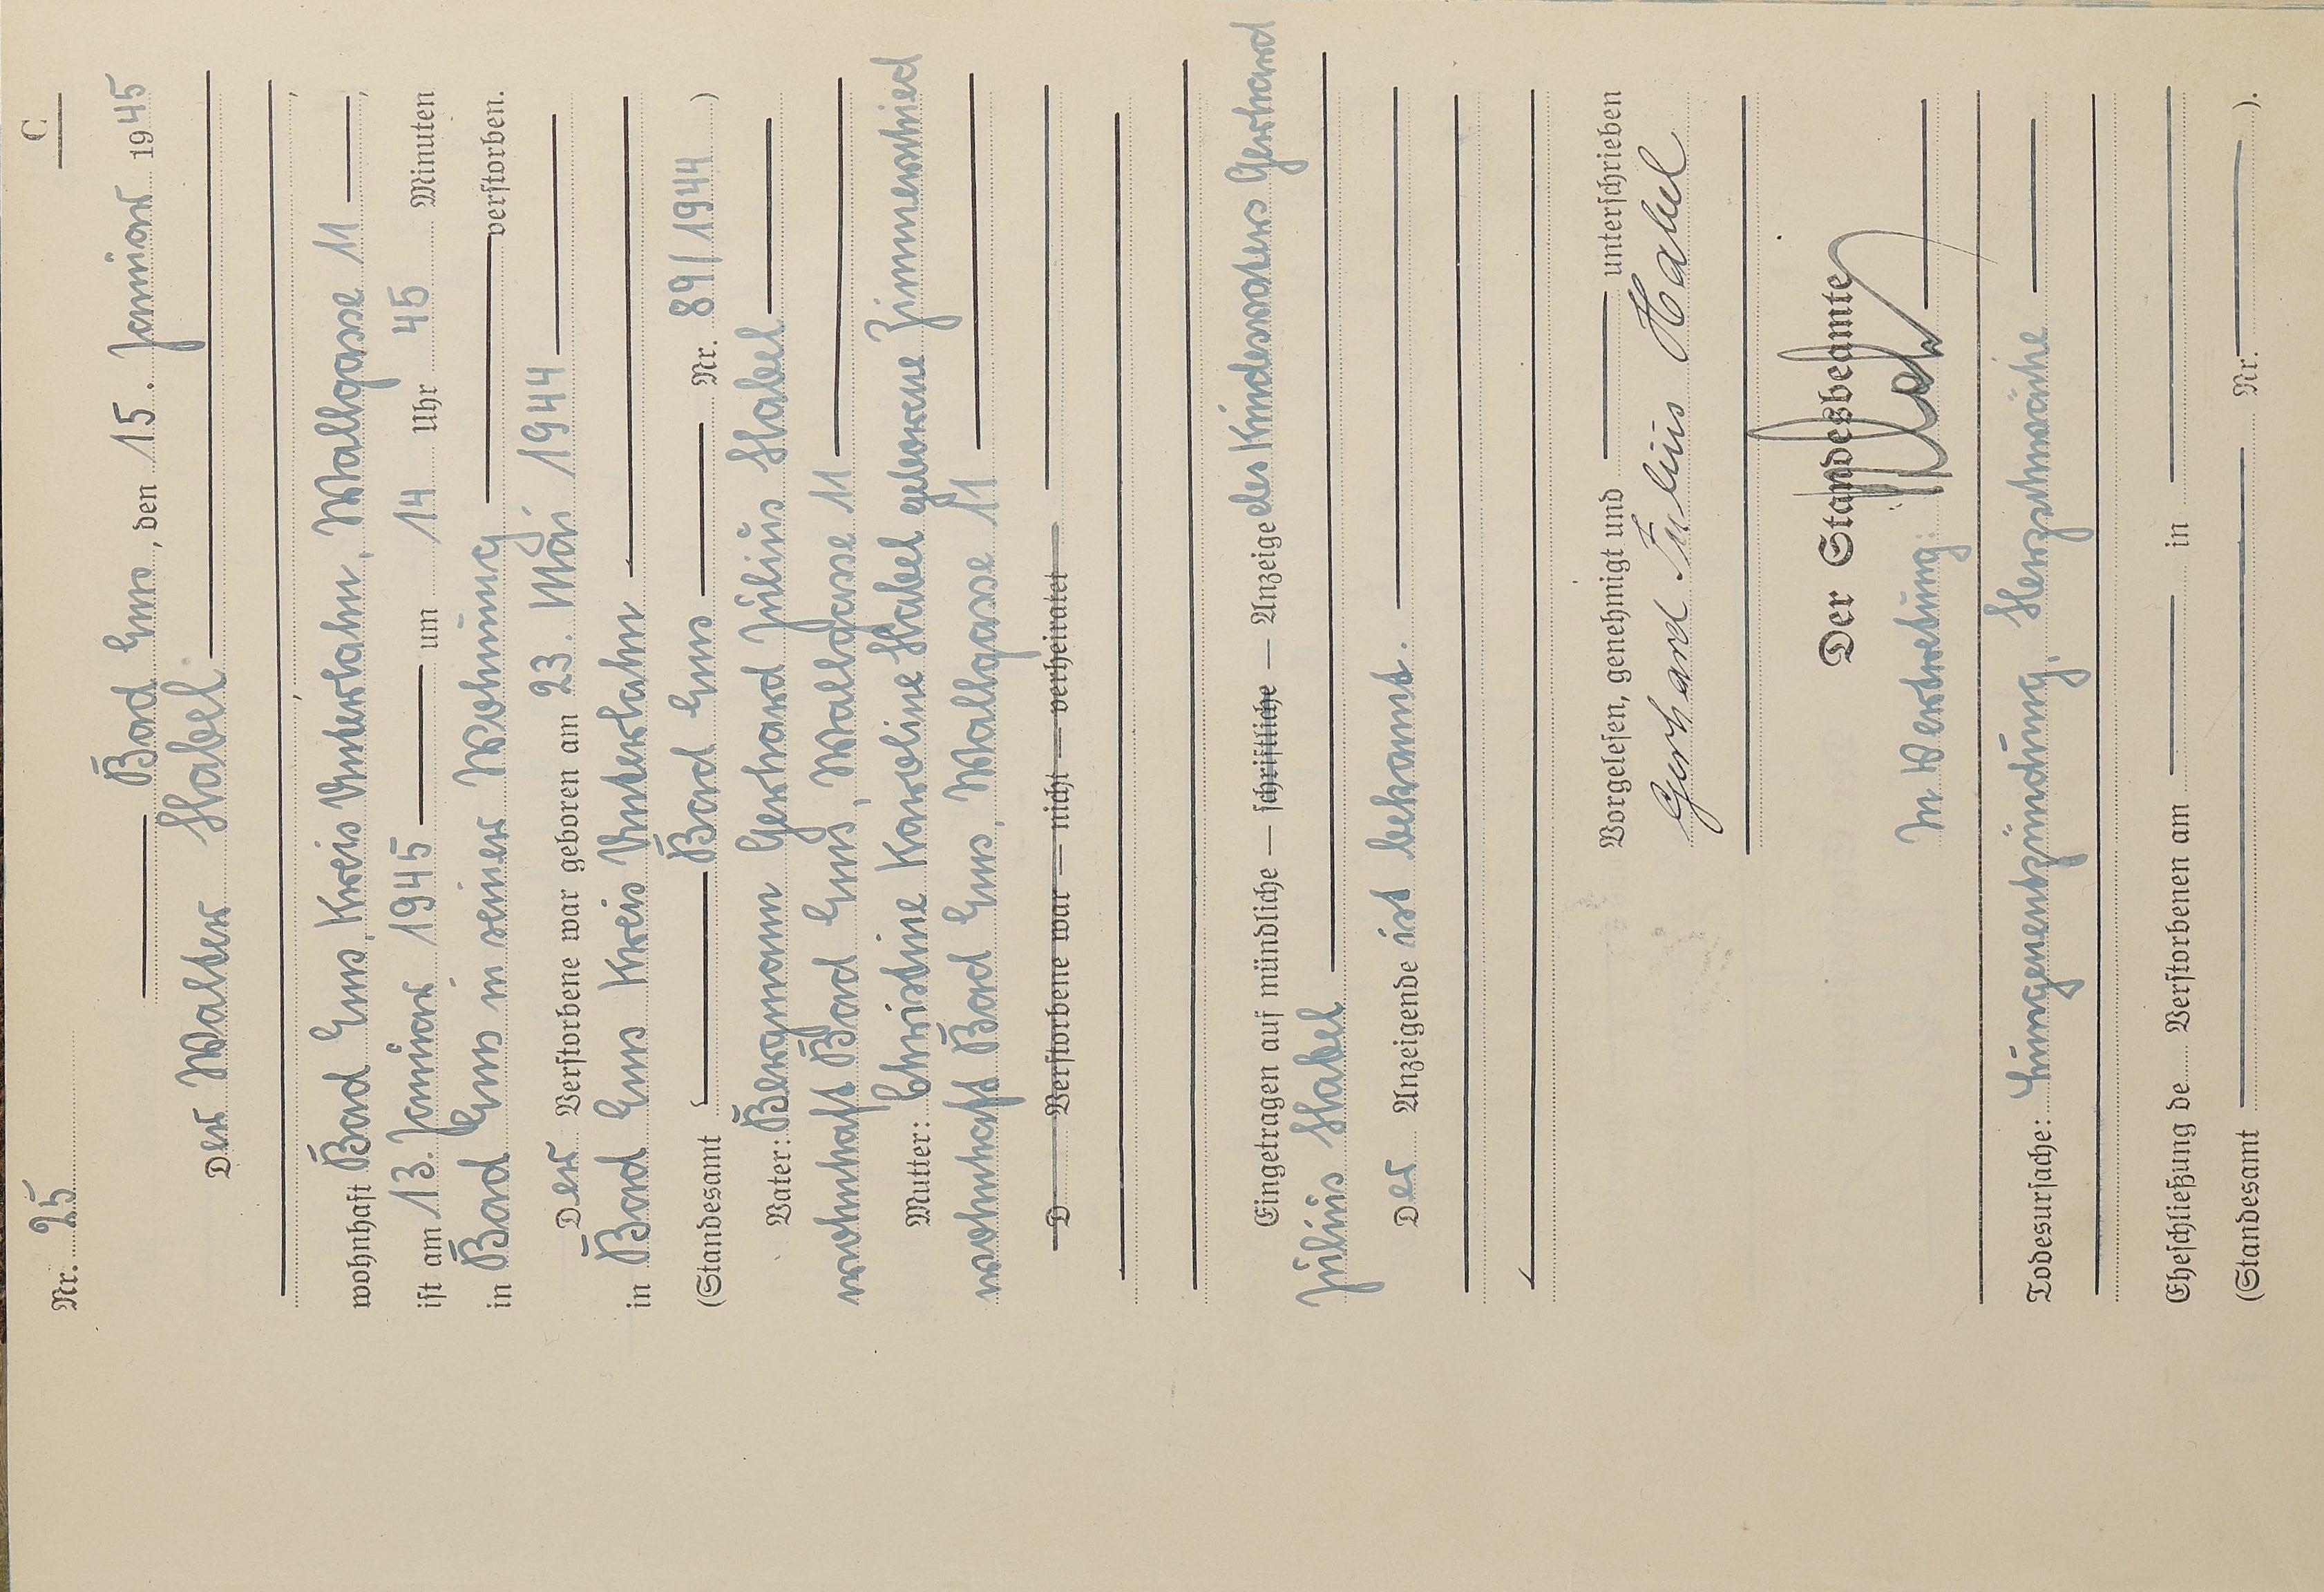 C
Nr. 25
Bad Ems, den 15. Januar 1945
Der Walter Habel
wohnhaft Bad Ems, Kreis Unterlahn, Wallgasse 11,
ist am 13. Januar 1945 um 14 Uhr 45 Minuten
in Bad Ems in seiner Wohnung verstorben.
Der Verstorbene war geboren am 23. Mai 1944
in Bad Ems Kreis Unterlahn
(Standesamt Bad Ems Nr. 89/1944)
Vater: Bergmann Gerhard Julius Habel
wohnhaft Bad Ems, Wallgasse 11
Mutter: Christine Karoline Habel geborene Zimmerschied
wohnhaft Bad Ems, Wallgasse 11
D Verstorbene war — nicht — verheiratet
Eingetragen auf mündliche — schriftliche — Anzeige des Kindesvaters Gerhard
Julius Habel
Der Anzeigende ist bekannt.
Vorgelesen, genehmigt und unterschrieben
Gerhard Julius Habel
Der Standesbeamte
In Vertretung:
Todesursache: Lungenentzündung, Herzschwäche
Eheschließung de Verstorbenen am in
(Standesamt Nr. ).